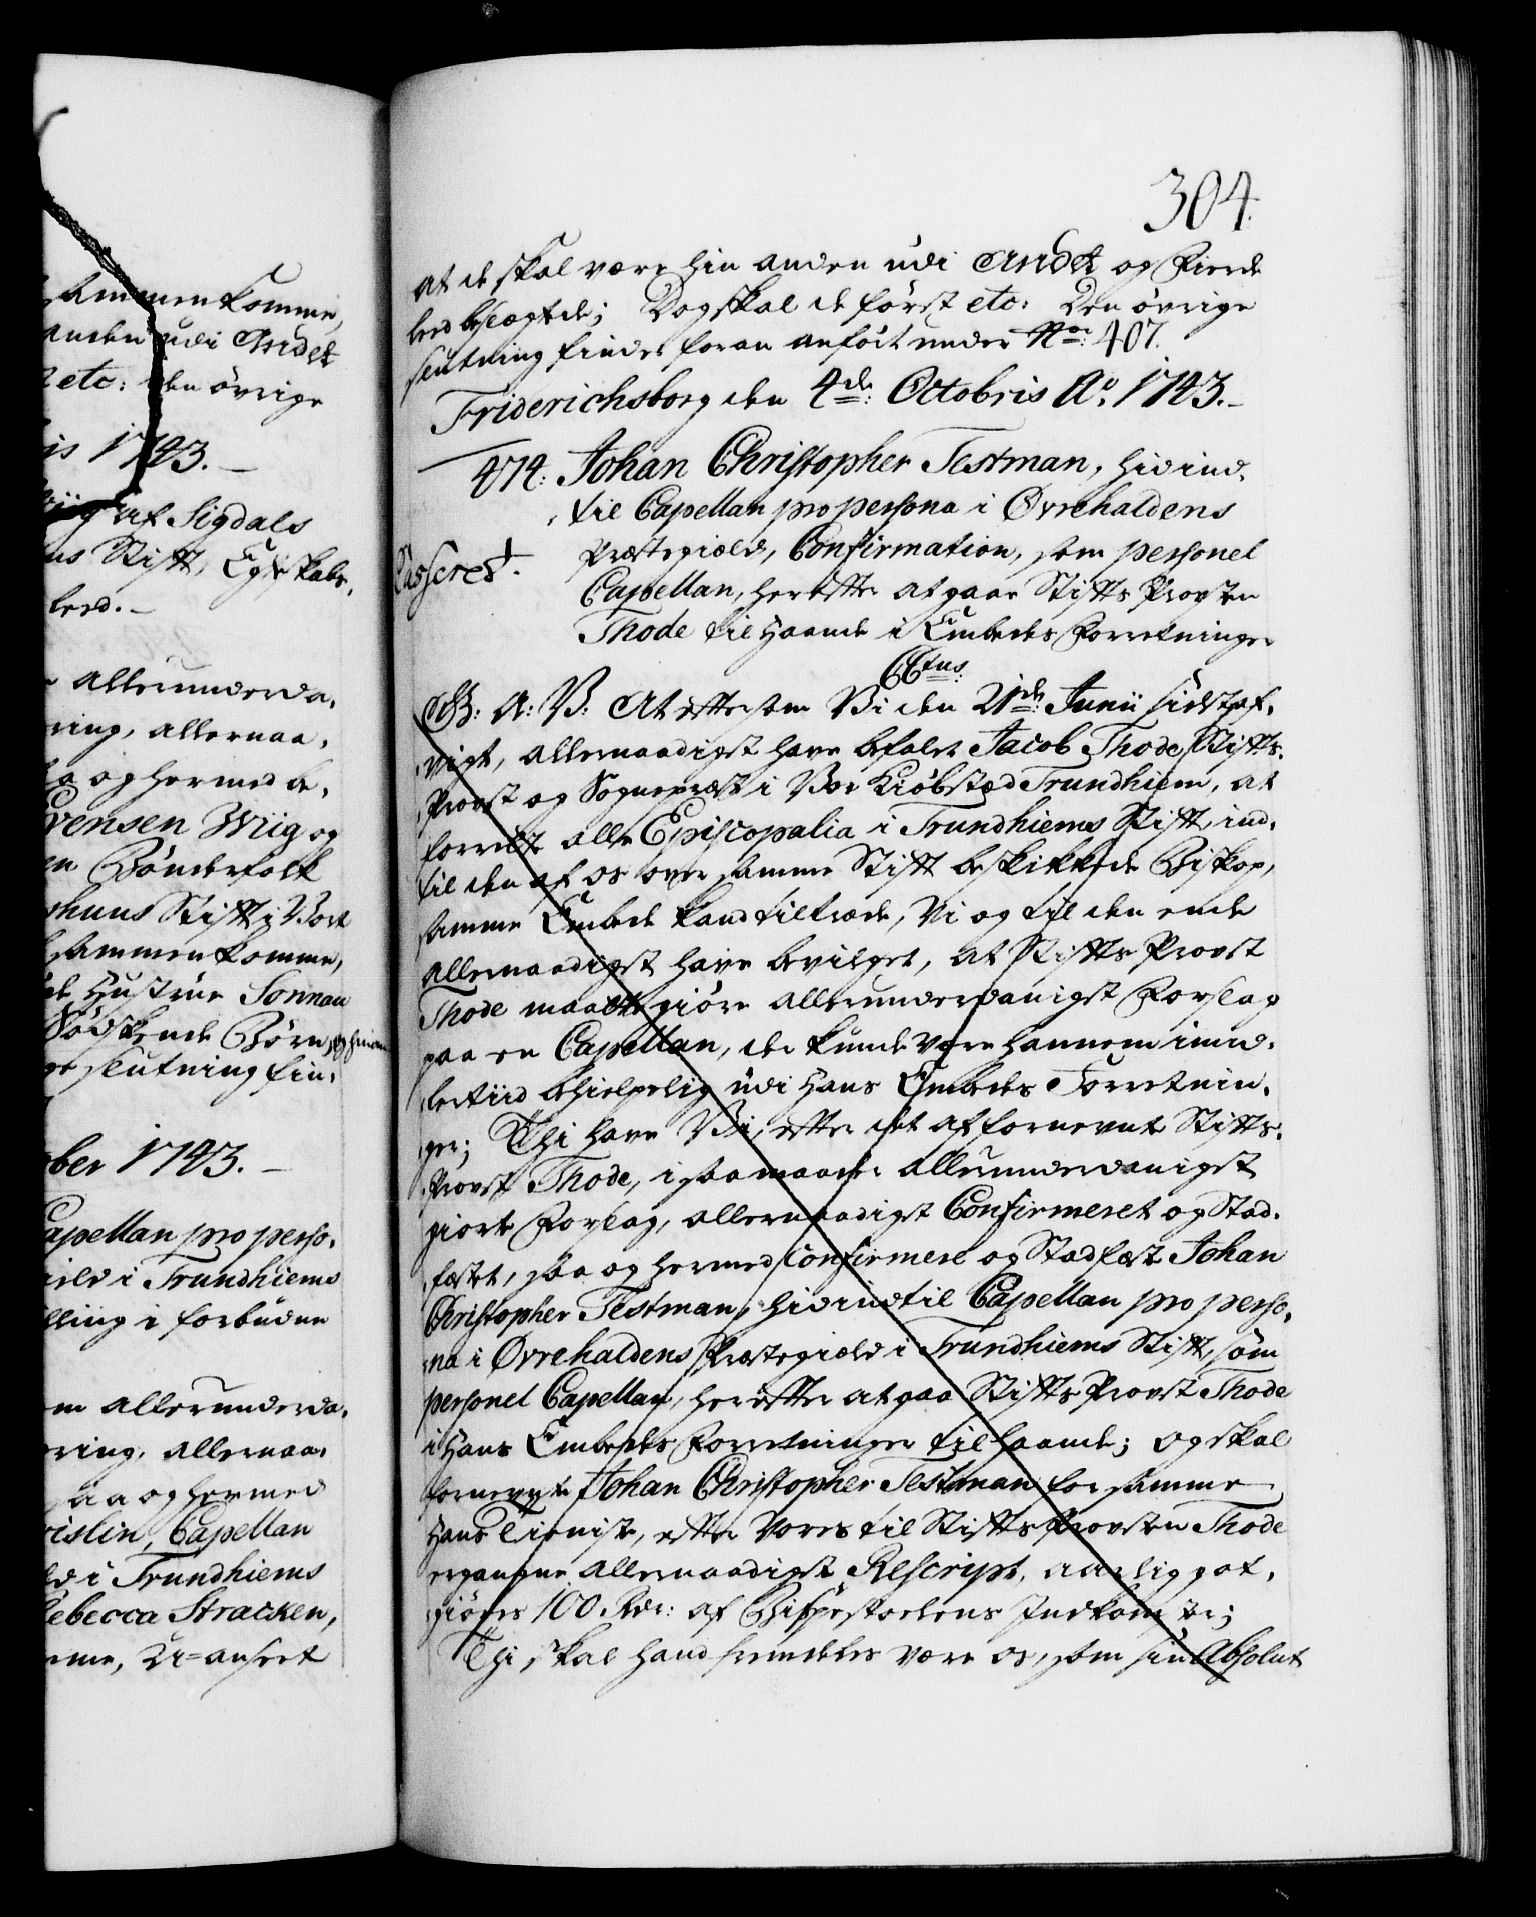 sammenkomme,
anden udi Andet
etc: den övrige
is 1743.
af Sigdals
us Stift, Egteskabs,
leed.
allerunderda,
ring, allernaa,
og hermed be,
vensen Wiig og
en Bönderfolk
shuus Stift i Vort
sammenkomme,
Hustrue Sonnan
Södskende Börn
slutning fin,
ber 1743.
Capellan pro perso,
ield i Trundhiems
lling i forbuden
em allerunderda,
ring, allernaa,
saa og hermed
rislin, Capellan
ld i Trundhiems
Rebecca Stracken,
U-anseet
304.
at de skal være hin anden udi Andet og Fierde
leed beslægtede; Dog skal de först etc: Den övrige
slutning findes foran anfört under No: 407.
Friderichsborg den 4de: Octobris Ao. 1743.
474: Johan Christopher Testman, hidind,
til Capellan pro persona i Øvrehaldens
Præstegield, Confirmation, som personel
Casseret.
Capellan, herefter at gaae Stifts Provsten
Thode til Haande i Embeds Forretninger
C6tus:
A: V: At eftersom Vi den 21de: Junii sidstaf,
vigt, allernaadigst have befalet Jacob Thode, Stifts,
Provst og Sognepræst i Vor Kiöbstæd Trundhiem, at
forrette alle Episcopalia i Trundhiems Stift, ind,
til den af os over samme Stift beskikkede Biskop,
samme Embede kand tiltræde, Vi og til den ende
allernaadigst have bevilget, at Stifts Provst
Thode maatte giöre allerunderdanigst Forslag
paa en Capellan, der kunde være hannem imid,
lertiid behielpelig udi Hans Embeds Forretnin,
ger; Thi have Vi, efter det af fornevnte Stifts,
Provst Thode, i saa maader allerunderdanigst
giorte Forslag, allernaadigst Confirmeret og Stad,
fæstet, saa og hermed Confirmere og Stadfæste Johan
Christopher Testman, hidindtil Capellan pro perso,
na i Øvrehaldens Præstegield i Trundhiems Stift, som
personel Capellan, herefter at gaa Stifts Provst Thode
i Hans Embeds Forretninger til haande; og skal
fornevnte Johan Christopher Testman for samme
Hans Tieniste, efter Vores til Stifts Provsten Thode
ergangne allernaadigst Rescript, aarlig got,
giöres 100. Rdr: af Bispestoelens Indkomster;
Thi skal hand fremdeles være os, som sin Absolut